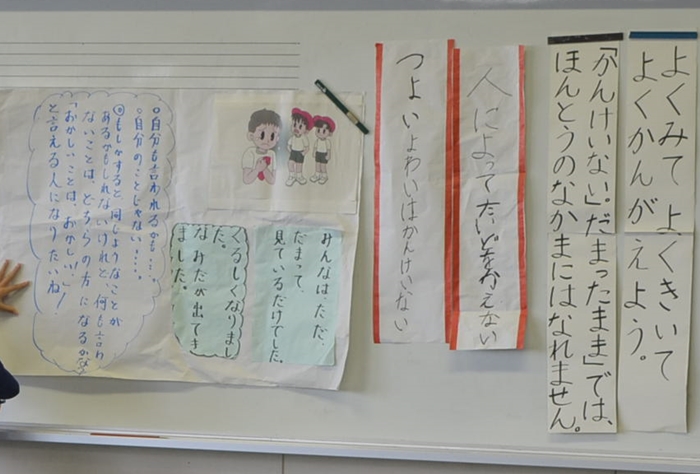 よくみて よくきいて
よくかんがえよう。
「かんけいない」「だまったまま」では、
ほんとうのなかまにはなれません。
人によってたいどをかえない
つよいよわいはかんけいない
みんなは、ただ、
だまって、
見ているだけでした。
くるしくなりまし
た。
なみだが出てき
ました。
○自分も言われるかも…。
○自分のことじゃない…。
◎もしかすると同じようなことが
あるかもしれないけれど、何も言わ
ないことは、どちらの方になるかな
「おかしいことは、おかしい!」
と言える人になりたいね!